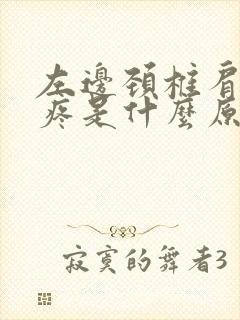 左邊頸柱肩
疼是什麼原
寂寞的舞者3